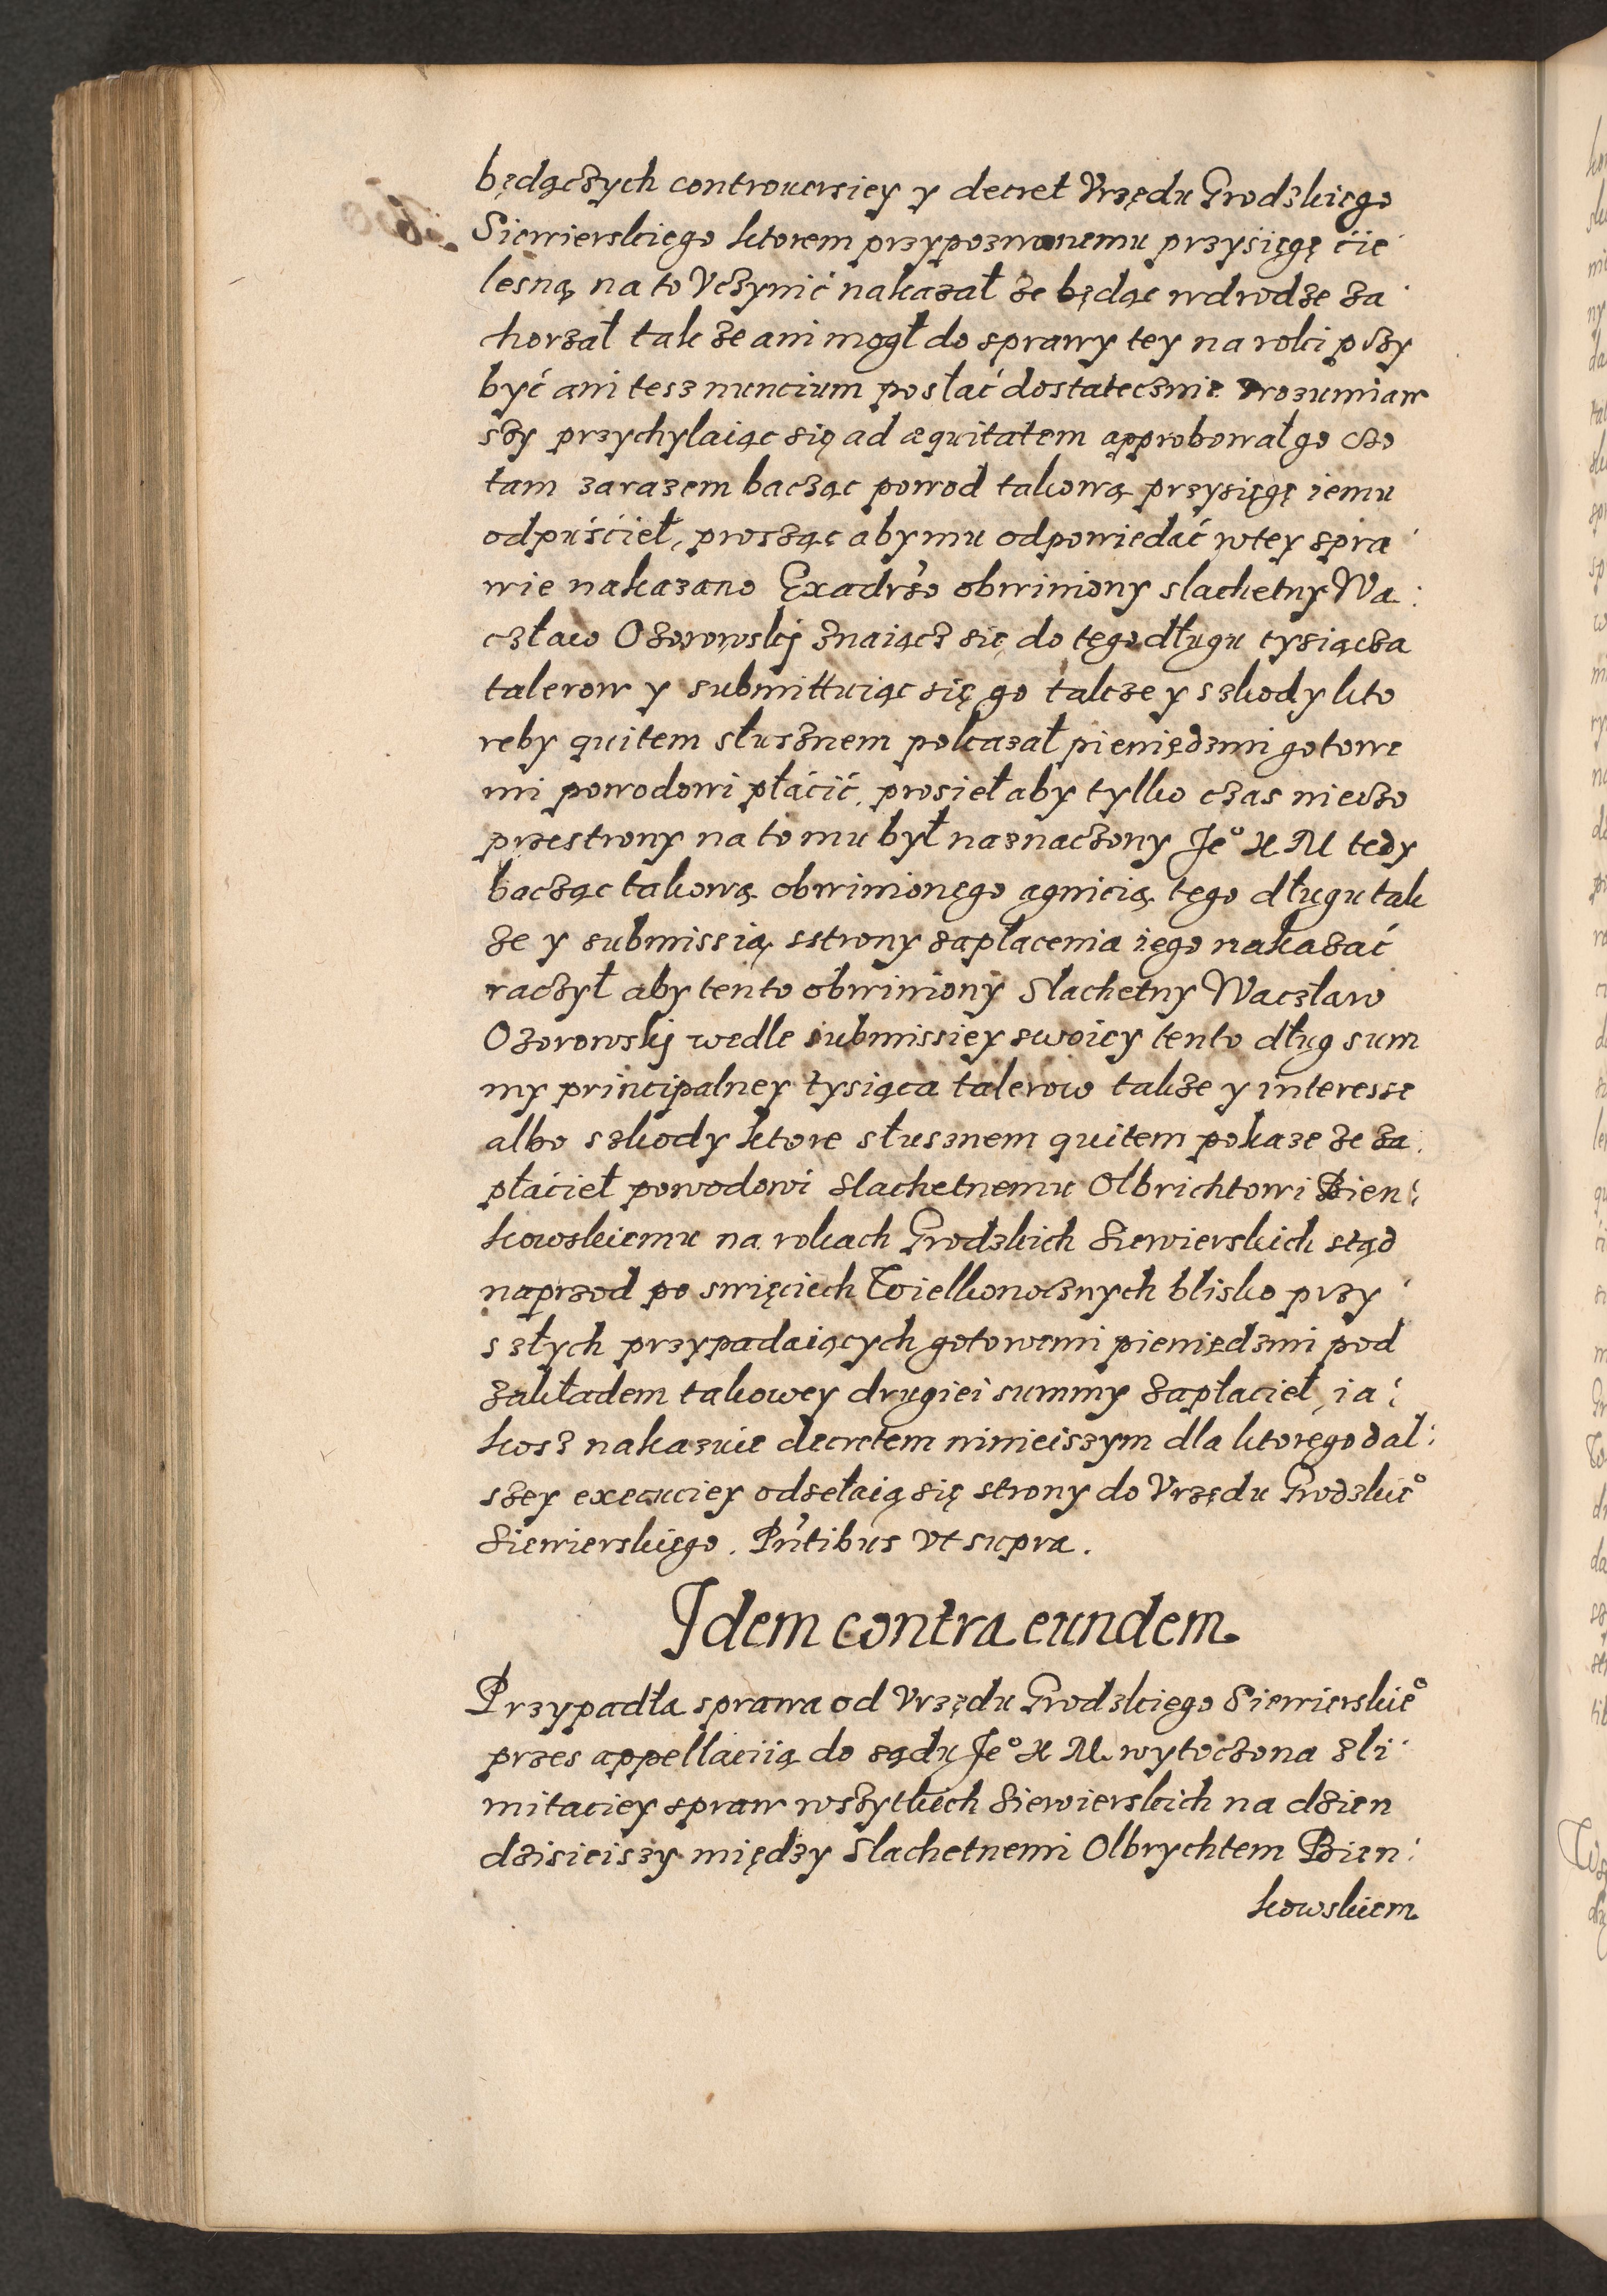 będączych controuersiey y decret Vrzędu Grodzkięgo
Siewierskiego ktorem przypozwanemu przysięgę ċie
lesną na to Vczynić nakazał że będąc wdrodze za
chorzał tak że ani mogł do sprawy tey na roki przy
być ani tesz nuncium posłać dostatecznie wrozumiaw
szy przychylaiąc się ad æquitatem approbował go czo
tam zarazem bacząc powod takową przysięgę iemu
odpuśćieł, prosząc aby mu odpowiedać wtey spra
wie nakazano Exadrso obwiniony slachetny Wa
czław Ozorowskij znaiącz się do tęgo długu tysiącza
talerow y submittuiąc się go takze y szkody kto
reby quitem słusznem pokazał pieniędzmi gotowe
mi powodowi płaćić, prosieł aby tylko czas nieczo
przestrony na to mu był naznaczony Je° X M tedy
bacząc takową obwinionęgo agnicią tęgo długu tak
że y submissią sstrony zapłacenia ięgo nakazać
raczył aby tento obwiniony Slachetny Waczław
Ozorowskij wedle submissiey swoiey tento dług sum
my principalney tysiąca talerow takze y interesse
albo szkody ktore słusznem quitem pokaze że za
płaćieł powodowi Slachetnemu Olbrichtowi Bien
kowskiemu na rokach Grodzkich Siewierskich stąd
naprzod po swięciech Wielkonocznych blisko przy
szłych przypadaiących gotowemi pieniędzmi pod
zakładem takowey drugiei summy zapłacieł, ia
kosz nakazuie decretem ninieiszym dla ktoręgo dal
szey execuciey odsełaią się strony do Vrzędu Grodzkie°
Siewierskięgo. Pr̃ntibus Vt supra.
Idem contra eundem
Przypadła sprawa od Vrzędu Grodzkięgo Siewierskie°
przes appellaciią do sądu Je° X M. wytoczona zli
mitaciey spraw wszytkich Siewierskich na dzien
dzisieiszy między Slachetnemi Olbrychtem Bien
kowskiem